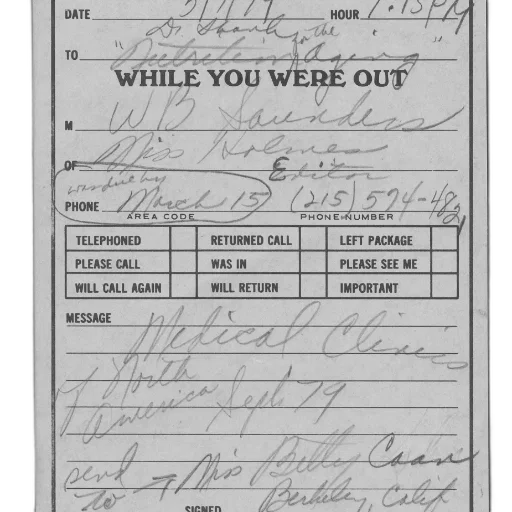 DATE HOUR 1:15 PM
Dr. for the
TO "Nutrition Aging"
WHILE YOU WERE OUT
M W B Saunders
OF Miss Holmes
Editor
was due by
PHONE March 15 (215) 574-482
AREA CODE PHONE NUMBER
TELEPHONED RETURNED CALL LEFT PACKAGE
PLEASE CALL WAS IN PLEASE SEE ME
WILL CALL AGAIN WILL RETURN IMPORTANT
MESSAGE Medical Clinics
of North
America Sept 79
send
to → Miss Betty Coan
SIGNED Berkeley, Calif